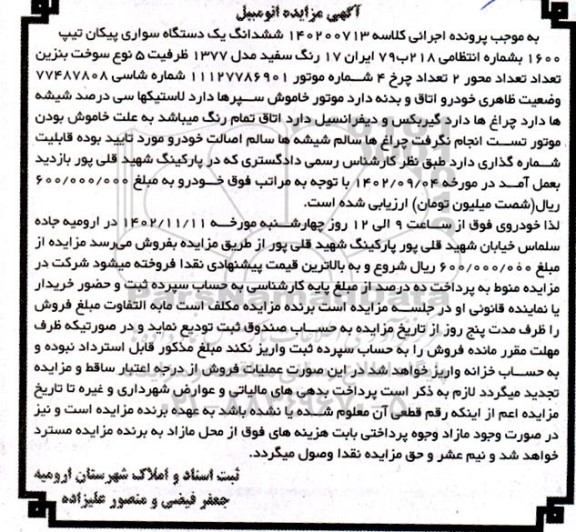 آگهی مزایده اتومبیل
به موجب پرونده اجرائی کلاسه ۱۴۰۲۰۰۷۱۳ ششدانگ یک دستگاه سواری پیکان تیپ
۱۶۰۰ بشماره انتظامی ۲۱۸ب۷۹ ایران ۱۷ رنگ سفید مدل ۱۳۷۷ ظرفیت ۵ نوع سوخت بنزین
تعداد تعداد محور ۲ تعداد چرخ ۴ شماره موتور ۱۱۱۲۷۷۸۶۹۰۱ شماره شاسی ۷۷۴۸۷۸۰۸
وضعیت ظاهری خودرو اتاق و بدنه دارد موتور خاموش سپرها دارد لاستیکها سی درصد شیشه
ها دارد چراغ ها دارد گیربکس و دیفرانسیل دارد اتاق تمام رنگ میباشد به علت خاموش بودن
موتور تست انجام نگرفت چراغ ها سالم شیشه ها سالم اصالت خودرو مورد تایید بوده قابلیت
شماره گذاری دارد طبق نظر کارشناس رسمی دادگستری که در پارکینگ شهید قلی پور بازدید
بعمل آمد در مورخه ۱۴۰۲/۰۹/۰۴ با توجه به مراتب فوق خودرو به مبلغ ۶۰۰/۰۰۰/۰۰۰
ریال(شصت میلیون تومان) ارزیابی شده است.
لذا خودروی فوق از ساعت ۹ الی ۱۲ روز چهارشنبه مورخه ۱۴۰۲/۱۱/۱۱ در ارومیه جاده
سلماس خیابان شهید قلی پور پارکینگ شهید قلی پور از طریق مزایده بفروش می‌رسد مزایده از
مبلغ ۶۰۰/۰۰۰/۰۰۰ ریال شروع و به بالاترین قیمت پیشنهادی نقدا فروخته میشود شرکت در
مزایده منوط به پرداخت ده درصد از مبلغ پایه کارشناسی به حساب سپرده ثبت و حضور خریدار
یا نماینده قانونی او در جلسه مزایده است برنده مزایده مکلف است مابه التفاوت مبلغ فروش
را ظرف مدت پنج روز از تاریخ مزایده به حساب صندوق ثبت تودیع نماید و در صورتیکه ظرف
مهلت مقرر مانده فروش را به حساب سپرده ثبت واریز نکند مبلغ مذکور قابل استرداد نبوده و
به حساب خزانه واریز خواهد شد در این صورت عملیات فروش از درجه اعتبار ساقط و مزایده
تجدید میگردد لازم به ذکر است پرداخت بدهی های مالیاتی و عوارض شهرداری و غیره تا تاریخ
مزایده اعم از اینکه رقم قطعی آن معلوم شده یا نشده باشد به عهده برنده مزایده است و نیز
در صورت وجود مازاد وجوه پرداختی بابت هزینه های فوق از محل مازاد به برنده مزایده مسترد
خواهد شد و نیم عشر و حق مزایده نقدا وصول میگردد.
ثبت اسناد و املاک شهرستان ارومیه
جعفر فیضی و منصور علیزاده